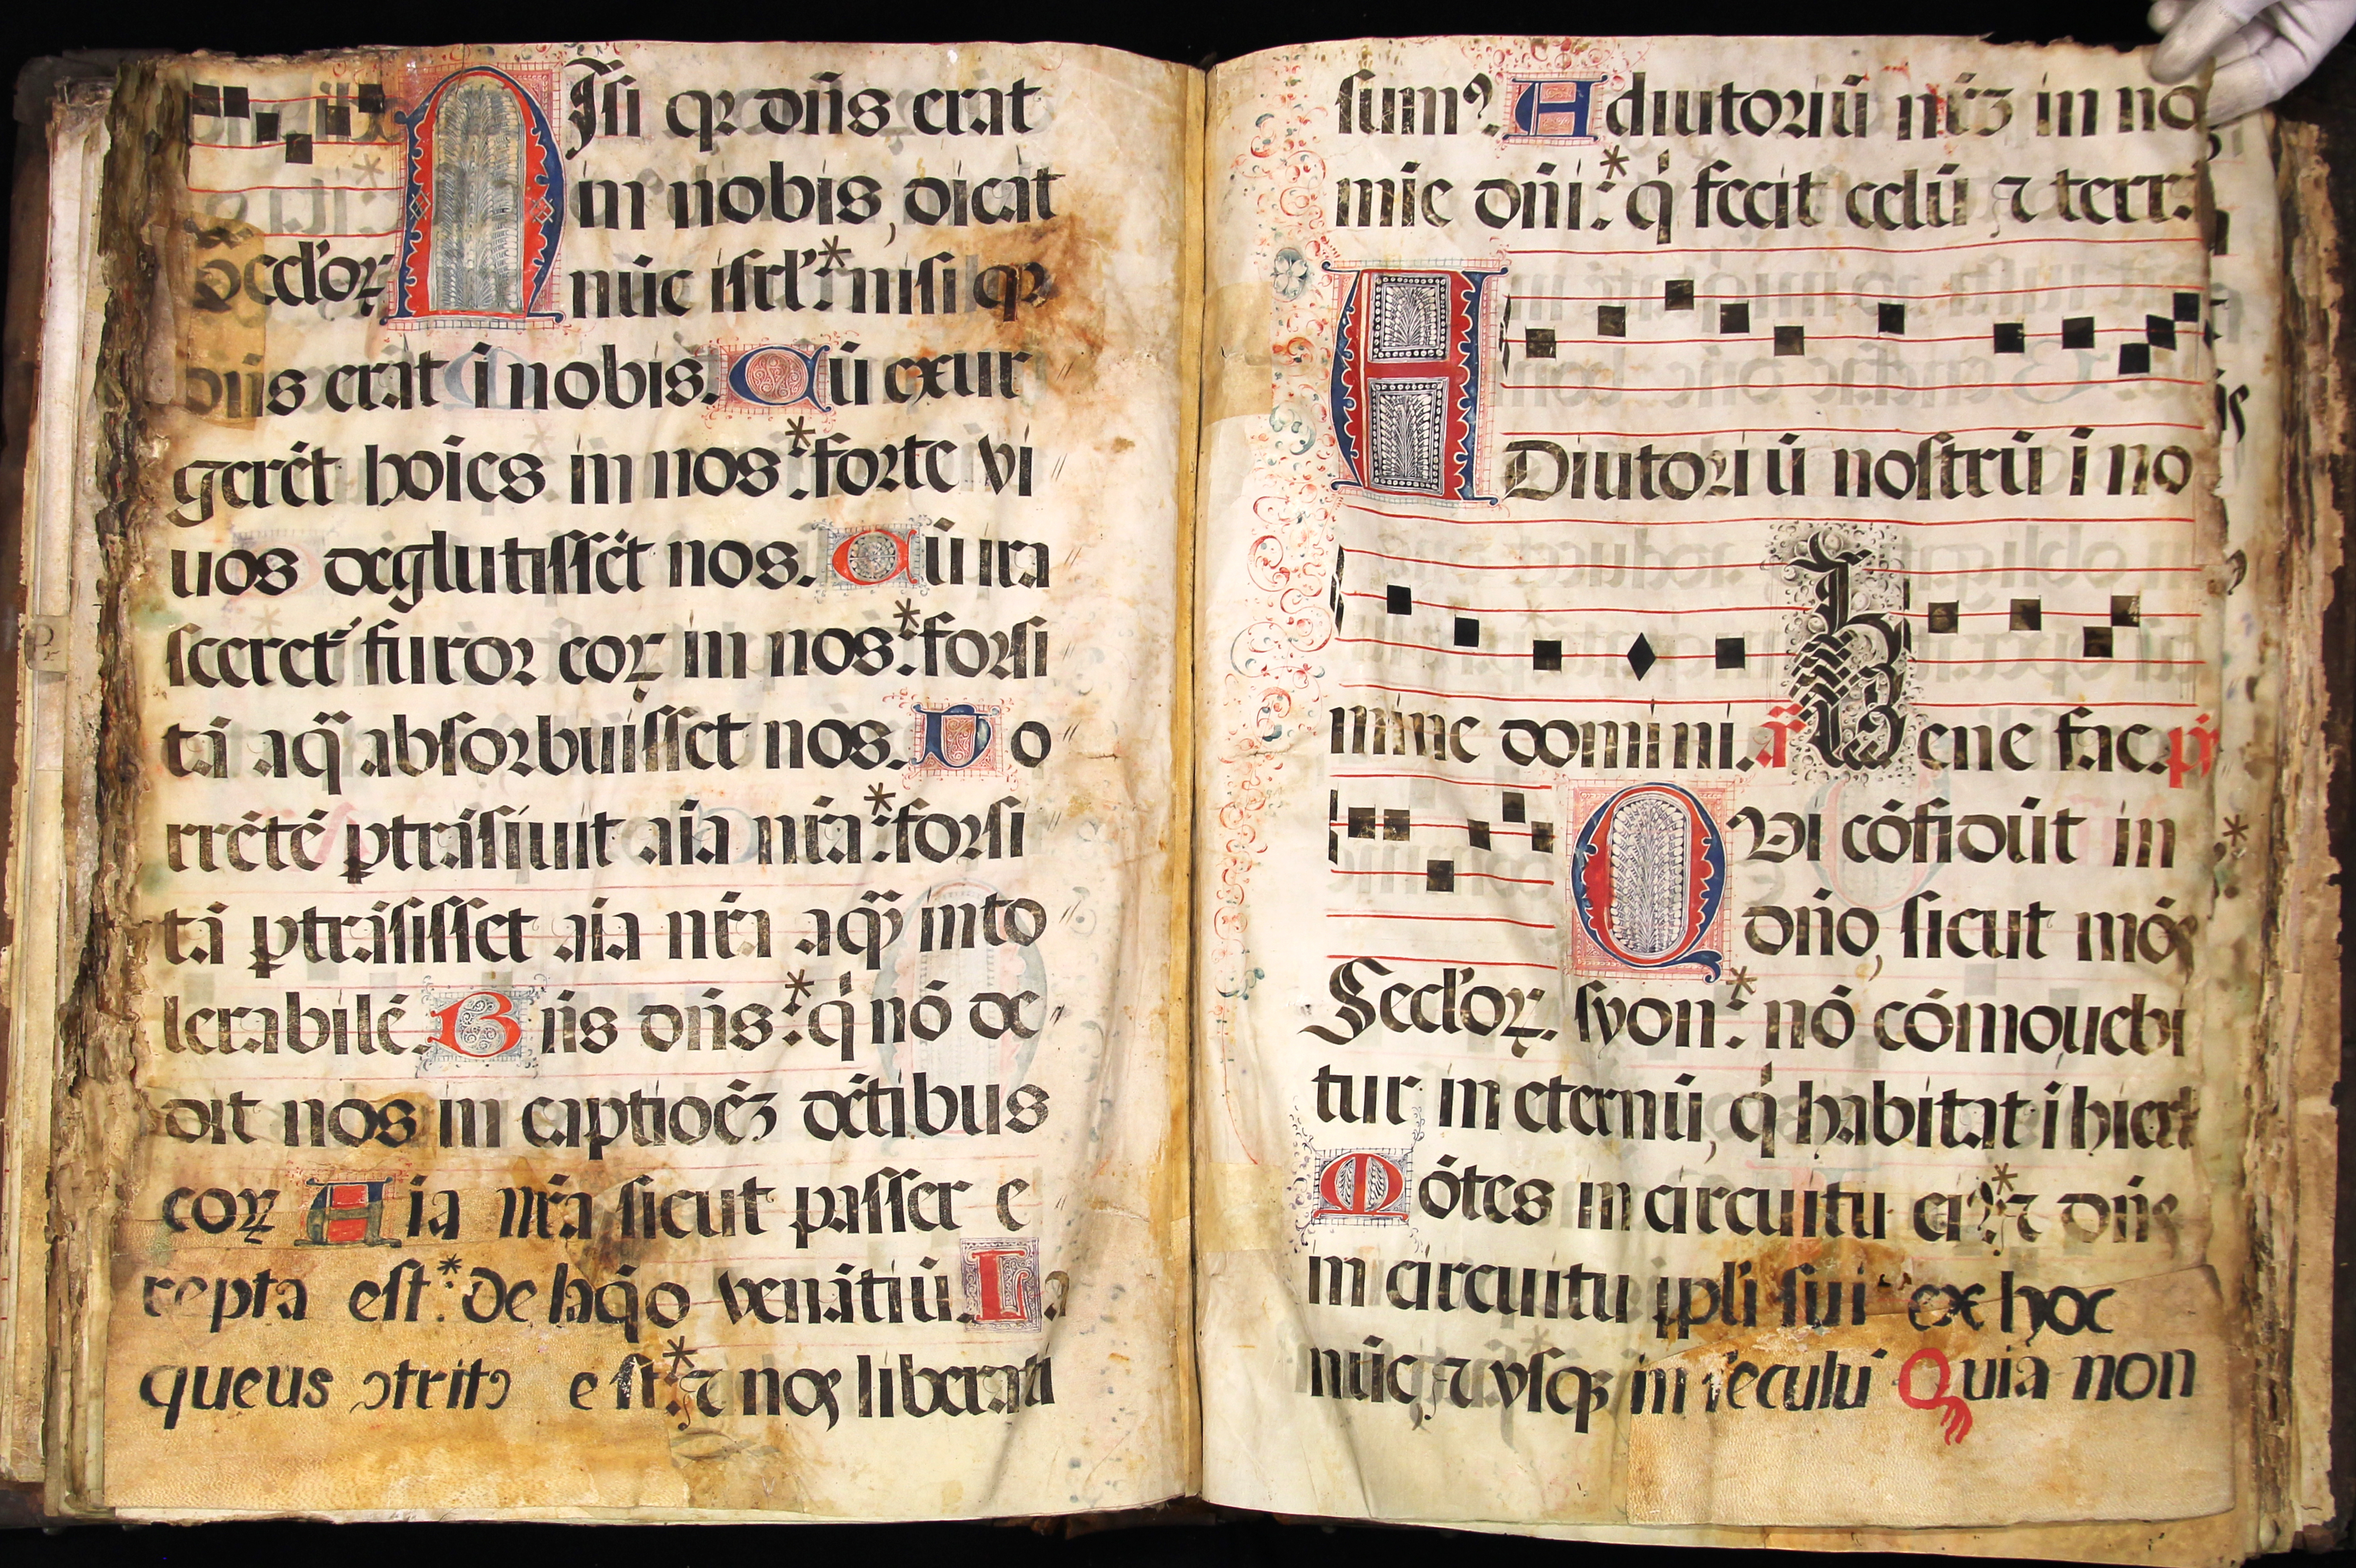 NIsi qꝛ dñs erat
in nobis, dicat
seclꝰoꝝ nūc isrl'* nisi qꝛ
dñs erat ī nobis. Cū exur
gerēt hoīes in nos:* forte vi
uos deglutissēt nos. Cū ira
sceret᷑ furor eoꝝ in nos:* forsi
tā aq̄ absorbuisset nos. To
rrētē ꝑtrāsiuit aīa nr̄a:* forsi
tā ꝑtrāsisset aīa nr̄a aq̄ȝ into
lerabilē. Bn̄s dñs:* q̇ nō de
dit nos in captioēȝ dētibus
eoꝝ Aīa nr̄a sicut passer e
repta est:* de laq̇o venātiū. La
queus ꝯtritꝯ est:* ⁊ nos liberati
sumꝰ. Adiutoriū nr̄ȝ in no
mīe dñi:* q̇ fecit celū ⁊ terr.
ADiutoriū nostrū ī no
mine domini. a᷑ Bene fac. ps̄
QVi cōfidūt in
dño, sicut mōs
Seclꝰoꝝ. syon:* nō cōmouebi
tur in eternū, q̇ habitat ī hierl
Mōtes in circuitu eiꝰ:* ⁊ dñs
in circuitu ppl'i sui ex hoc
nūc, ⁊ vsqꝫ in seculū Quia non